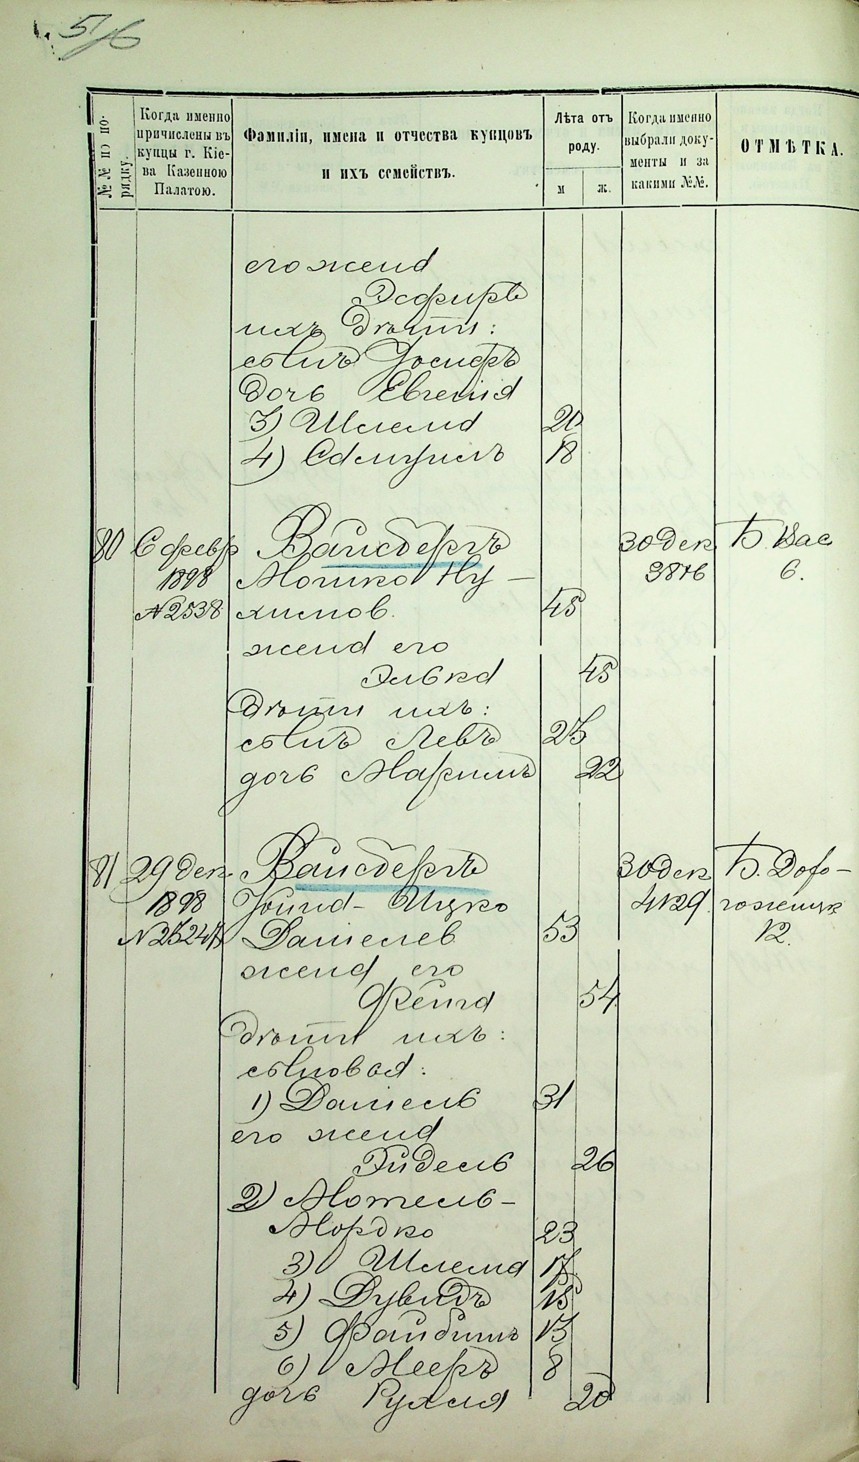 56
№№ по по-
рядку.
Когда именно
причислены въ
купцы г. Кіе-
ва Казенною
Палатою.
Фамиліи, имена и отчества купцовъ
и ихъ семействъ.
Лѣта отъ
роду.
м
ж.
Когда именно
выбрали доку-
менты и за
какими №№.
ОТМѢТКА.
его жена
Эсфирь
ихъ дѣти:
сынъ Іосифъ
дочь Евгенія
3) Шлема 20
4) Самуилъ 18
80 6 февр Вайсбергъ 30 дек Б. Вас
1898 Мошко Ну- 6.
№2538 химов. 45
жена его
Элька 45
дѣти ихъ:
сынъ Левъ 25
дочь Маримъ 22
81 29 дек Вайсбергъ 30 дек Б. Доро-
1898 Іоина-Ицко 4129 гожицк
Даніелев 53 12.
жена его
Фейга 54
дѣти ихъ:
сыновья:
1) Даніель 31
его жена
Эйдель 26
2) Мотель-
Мордко 23
3) Шлема 17
4) Дувидъ 15
5) Файбишъ 13
6) Мееръ 8
дочь Рухля 20